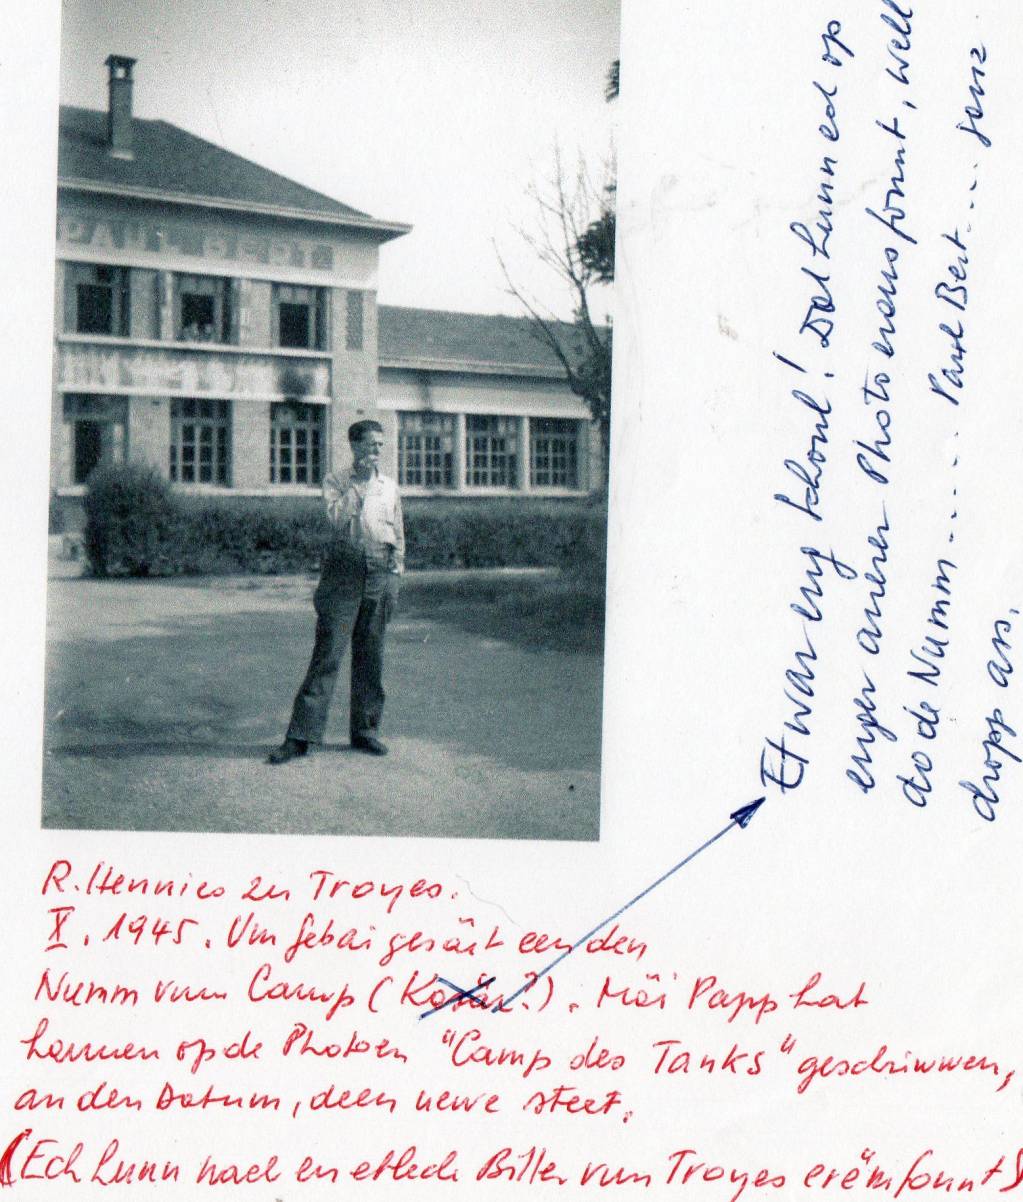 PAUL BERT
R. Hennico zu Troyes.
X. 1945. Um Gebai gesäit een den
Numm vum Camp (Kosär?). Mäi Papp hat
hannen op de Photoen "Camp des Tanks" geschriwwen,
an den Datum, deen uewe steet.
(Ech hunn nach en etlech Biller vun Troyes erëmfonnt)
Et war eng Schoul! Dat hunn ech op
enger anerer Photo erausfonnt, well
do de Numm .... Paul Bert .... ganz
dropp ass.